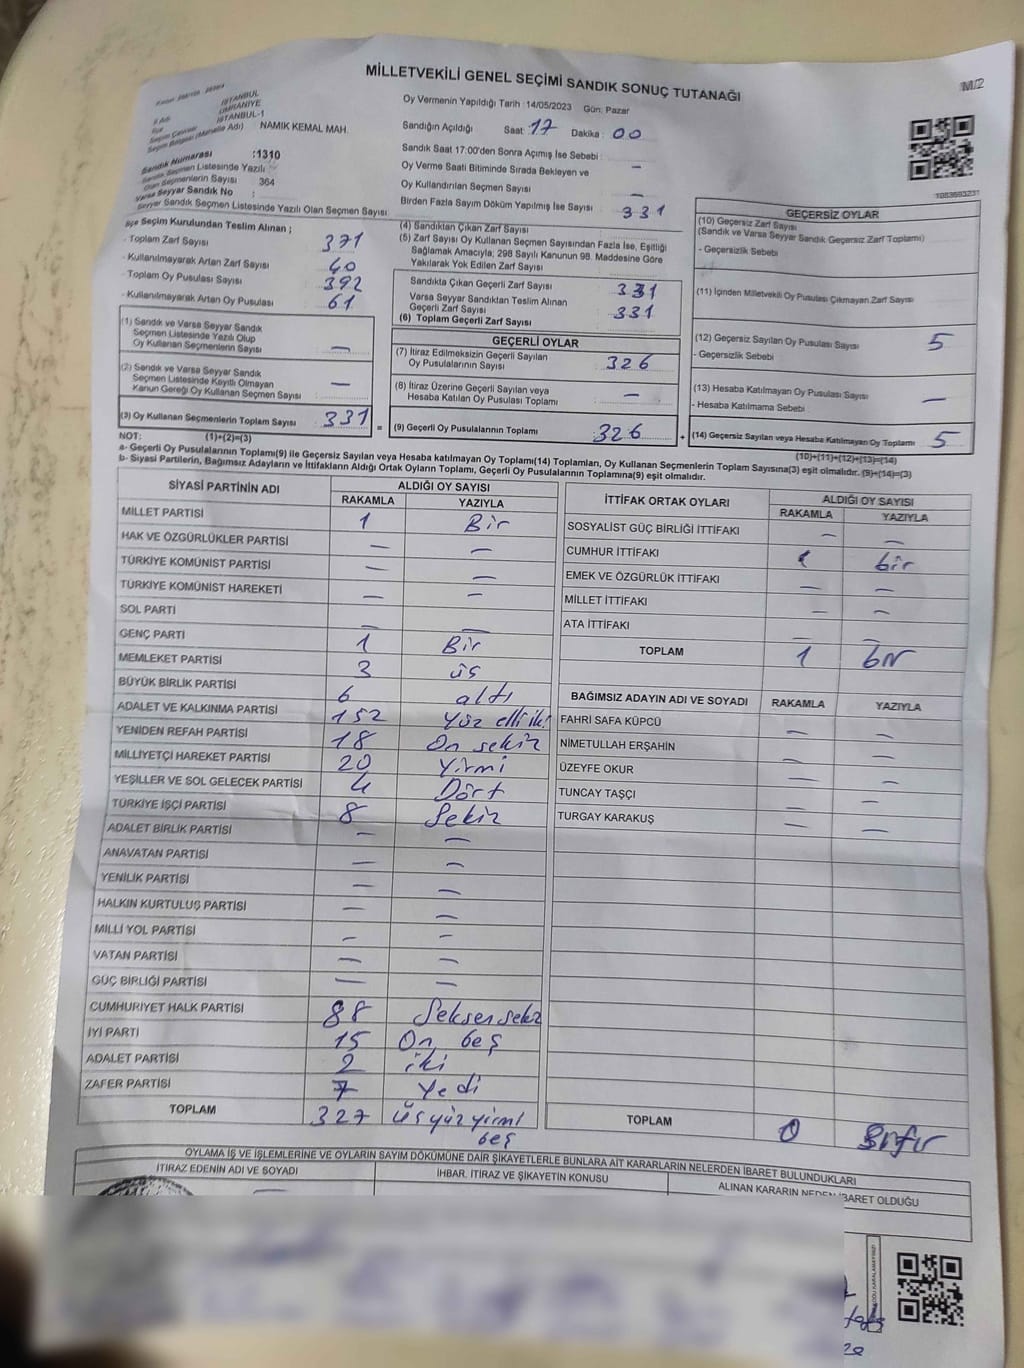 MİLLETVEKİLİ GENEL SEÇİMİ SANDIK SONUÇ TUTANAĞI
M/2
İli Adı İSTANBUL
İlçe ÜMRANİYE
Seçim Çevresi İSTANBUL-1
Seçim Bölgesi (Mahalle Adı) NAMIK KEMAL MAH.
Sandık Numarası :1310
Sandık Seçmen Listesinde Yazılı
Olan Seçmenlerin Sayısı 364
Varsa Seyyar Sandık No :
Seyyar Sandık Seçmen Listesinde Yazılı Olan Seçmen Sayısı
Oy Vermenin Yapıldığı Tarih :14/05/2023 Gün: Pazar
Sandığın Açıldığı Saat: 17 Dakika: 00
Sandık Saat 17:00'den Sonra Açılmış İse Sebebi :
Oy Verme Saati Bitiminde Sırada Bekleyen ve —
Oy Kullandırılan Seçmen Sayısı
Birden Fazla Sayım Döküm Yapılmış İse Sayısı : —
1083693231
İlçe Seçim Kurulundan Teslim Alınan ;
- Toplam Zarf Sayısı 371
- Kullanılmayarak Artan Zarf Sayısı 40
- Toplam Oy Pusulası Sayısı 392
- Kullanılmayarak Artan Oy Pusulası 61
(1) Sandık ve Varsa Seyyar Sandık
Seçmen Listesinde Yazılı Olup
Oy Kullanan Seçmenlerin Sayısı —
(2) Sandık ve Varsa Seyyar Sandık
Seçmen Listesinde Kayıtlı Olmayan
Kanun Gereği Oy Kullanan Seçmen Sayısı : —
(3) Oy Kullanan Seçmenlerin Toplam Sayısı 331
(1)+(2)=(3)
(4) Sandıktan Çıkan Zarf Sayısı : 331
(5) Zarf Sayısı Oy Kullanan Seçmen Sayısından Fazla İse, Eşitliği
Sağlamak Amacıyla; 298 Sayılı Kanunun 98. Maddesine Göre
Yakılarak Yok Edilen Zarf Sayısı :
Sandıkta Çıkan Geçerli Zarf Sayısı : 331
Varsa Seyyar Sandıktan Teslim Alınan
Geçerli Zarf Sayısı
(6) Toplam Geçerli Zarf Sayısı : 331
GEÇERLİ OYLAR
(7) İtiraz Edilmeksizin Geçerli Sayılan
Oy Pusulalarının Sayısı : 326
(8) İtiraz Üzerine Geçerli Sayılan veya
Hesaba Katılan Oy Pusulası Toplamı : —
= (9) Geçerli Oy Pusulalarının Toplamı : 326
GEÇERSİZ OYLAR
(10) Geçersiz Zarf Sayısı
(Sandık ve Varsa Seyyar Sandık Geçersiz Zarf Toplamı)
- Geçersizlik Sebebi
(11) İçinden Milletvekili Oy Pusulası Çıkmayan Zarf Sayısı
(12) Geçersiz Sayılan Oy Pusulası Sayısı 5
- Geçersizlik Sebebi
(13) Hesaba Katılmayan Oy Pusulası Sayısı —
- Hesaba Katılmama Sebebi
+ (14) Geçersiz Sayılan veya Hesaba Katılmayan Oy Toplamı 5
(10)+(11)+(12)+(13)=(14)
NOT:
a- Geçerli Oy Pusulalarının Toplamı(9) ile Geçersiz Sayılan veya Hesaba katılmayan Oy Toplamı(14) Toplamları, Oy Kullanan Seçmenlerin Toplam Sayısına(3) eşit olmalıdır. (9)+(14)=(3)
b- Siyasi Partilerin, Bağımsız Adayların ve İttifakların Aldığı Ortak Oyların Toplamı, Geçerli Oy Pusulalarının Toplamına(9) eşit olmalıdır.
SİYASİ PARTİNİN ADI ALDIĞI OY SAYISI
RAKAMLA YAZIYLA
MİLLET PARTİSİ 1 Bir
HAK VE ÖZGÜRLÜKLER PARTİSİ — —
TÜRKİYE KOMÜNİST PARTİSİ — —
TÜRKİYE KOMÜNİST HAREKETİ — —
SOL PARTİ — —
GENÇ PARTİ 1 Bir
MEMLEKET PARTİSİ 3 üç
BÜYÜK BİRLİK PARTİSİ 6 altı
ADALET VE KALKINMA PARTİSİ 152 Yüz elli iki
YENİDEN REFAH PARTİSİ 18 On sekiz
MİLLİYETÇİ HAREKET PARTİSİ 20 Yirmi
YEŞİLLER VE SOL GELECEK PARTİSİ 4 Dört
TÜRKİYE İŞÇİ PARTİSİ 8 Sekiz
ADALET BİRLİK PARTİSİ — —
ANAVATAN PARTİSİ — —
YENİLİK PARTİSİ — —
HALKIN KURTULUŞ PARTİSİ — —
MİLLİ YOL PARTİSİ — —
VATAN PARTİSİ — —
GÜÇ BİRLİĞİ PARTİSİ — —
CUMHURİYET HALK PARTİSİ 88 Seksen sekiz
İYİ PARTİ 15 On beş
ADALET PARTİSİ 2 iki
ZAFER PARTİSİ 7 Yedi
TOPLAM 327 Üçyüzyirmi
beş
İTTİFAK ORTAK OYLARI ALDIĞI OY SAYISI
RAKAMLA YAZIYLA
SOSYALİST GÜÇ BİRLİĞİ İTTİFAKI — —
CUMHUR İTTİFAKI 1 bir
EMEK VE ÖZGÜRLÜK İTTİFAKI — —
MİLLET İTTİFAKI — —
ATA İTTİFAKI — —
TOPLAM 1 bir
BAĞIMSIZ ADAYIN ADI VE SOYADI RAKAMLA YAZIYLA
FAHRİ SAFA KÜPCÜ — —
NİMETULLAH ERŞAHİN — —
ÜZEYFE OKUR — —
TUNCAY TAŞÇI — —
TURGAY KARAKUŞ — —
TOPLAM 0 Sıfır
OYLAMA İŞ VE İŞLEMLERİNE VE OYLARIN SAYIM DÖKÜMÜNE DAİR ŞİKAYETLERLE BUNLARA AİT KARARLARIN NELERDEN İBARET BULUNDUKLARI
İTİRAZ EDENİN ADI VE SOYADI İHBAR, İTİRAZ VE ŞİKAYETİN KONUSU ALINAN KARARIN NEDEN İBARET OLDUĞU